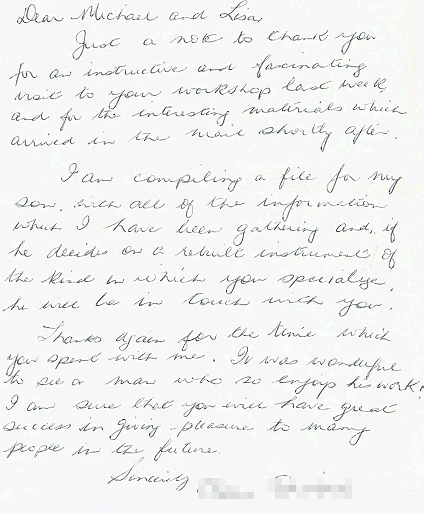 Dear Michael and Lisa,
Just a note to thank you
for an instructive and fascinating
visit to your workshop last week,
and for the interesting materials which
arrived in the mail shortly after.
I am compiling a file for my
son, with all of the information
which I have been gathering and, if
he decides on a rebuilt instrument of
the kind in which you specialize,
he will be in touch with you.
Thanks again for the time which
you spent with me. It was wonderful
to see a man who so enjoys his work!
I am sure that you will have great
success in giving pleasure to many
people in the future.
Sincerely